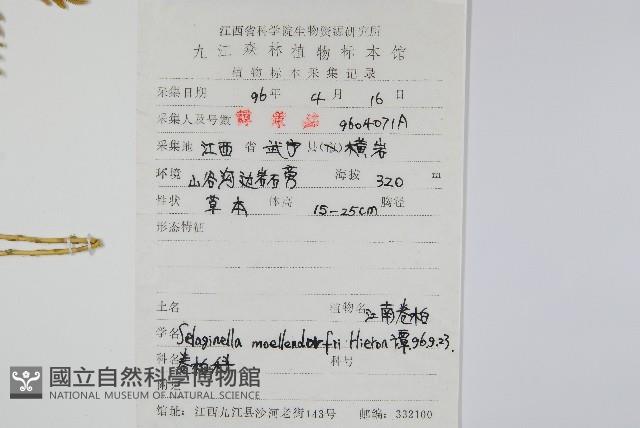 江西省科学院生物资源研究所
九江森林植物标本馆
植物标本采集记录
采集日期 96年 4月 16日
采集人及号数 譚策銘 9604071A
采集地 江西 省 武宁 县(市) 横岩
环境 山谷沟边岩石旁 海拔 320 m
性状 草本 体高 15-25cm 胸径
形态特征
土名 植物名 江南卷柏
学名 Selaginella moellendorfii Hieron 譚.96.9.23.
科名 卷柏科 科号
附记
馆址: 江西九江县沙河老街143号 邮编: 332100
國立自然科學博物館
NATIONAL MUSEUM OF NATURAL SCIENCE